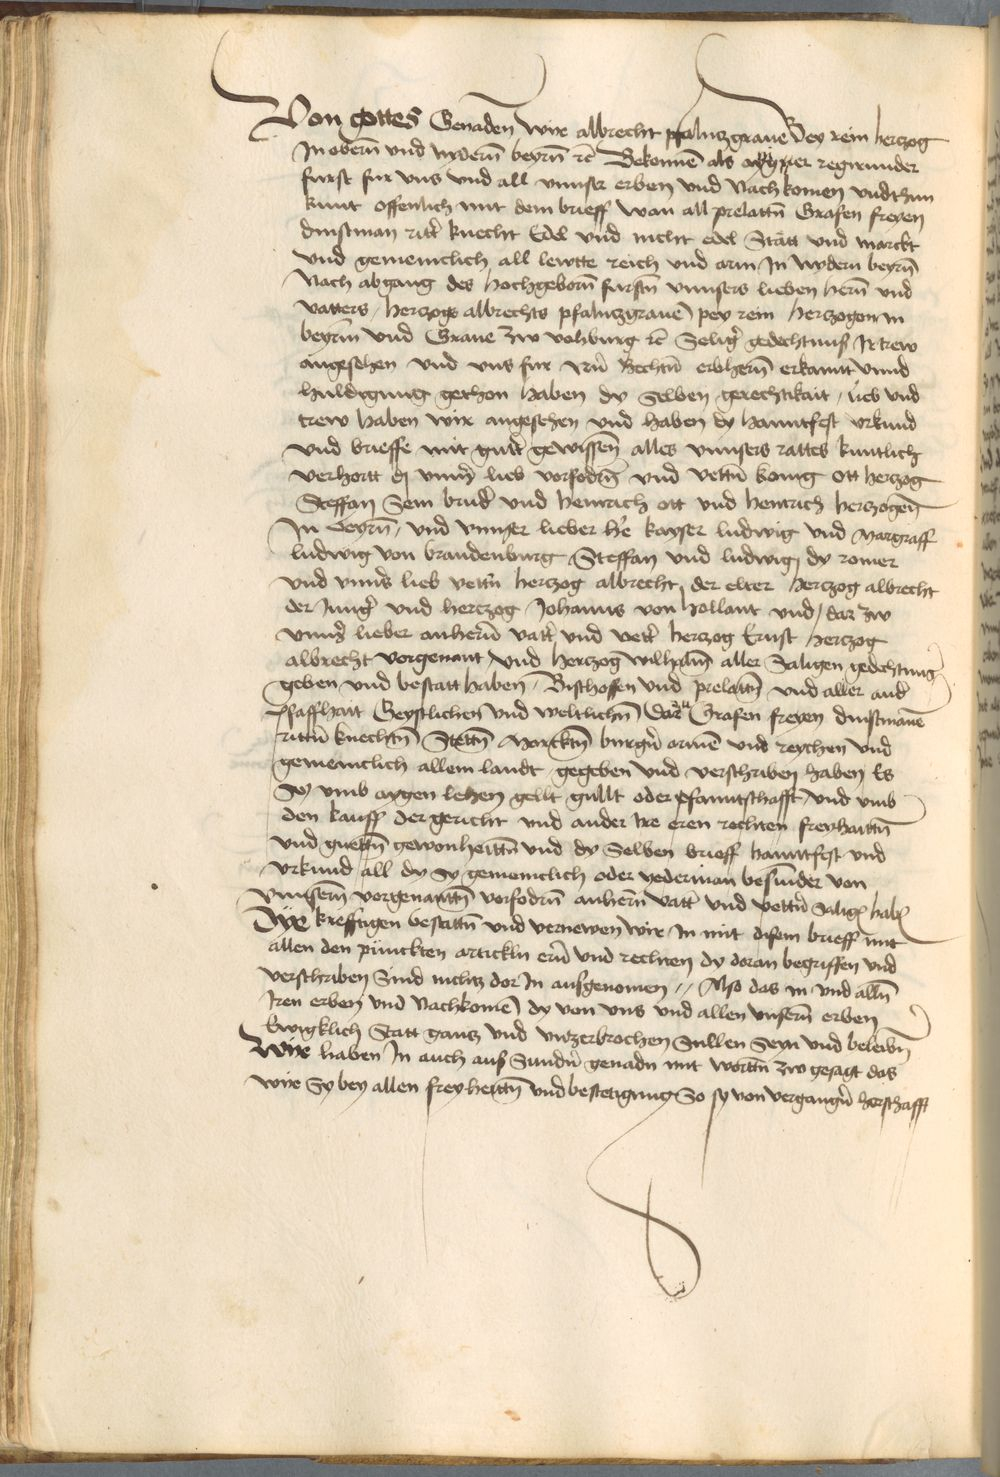 Von gottes Genaden wir albrecht pfalntzgraue Bey rein hertzog
In obern̄ vnd nydern̄ beyrn̄ ꝛc̄ Bekennē als ayniger regirunder
furst fur vns vnd all vnnser erben vnd Nachkomen vnd thun
kunt offenlich mit dem brieff wan all prelattn̄ Grafen freyen
dinstman ritt̄ knecht Edel vnd nicht edel Stätt vnd marckt
vnd gemeinclich all lewtte reich vnd arm In nydern beyrn̄
Nach abgang des hochgeborn̄ furstn̄ vnnsers lieben hern̄ vnd
vatters hertzogs albrechts pfalntzgrauē pey rein hertzogen in
beyrn̄ vnd Graue zw vohburg ꝛc̄ Seliḡ gedechtnuß Ir trew
angesehen vnd vns fur irn̄ Rechtn̄ erbhern̄ erkannt vnnd
huldigung gethon haben dy selben gerechtikait lieb vnd
trew haben wir angesehen vnd haben dy hanntfest vrkund
vnd brieffe mit gutt̄ gewissen̄ alles vnnsers rattes kuntlich
verhortt dy vnns̄ lieb vorfodrn̄ vnd vettn̄ konig ott hertzog
Steffan Sein brud̄ vnd heinrich ott vnd heinrich hertzogen̄
In Beyrn̄ vnd vnnser lieber he kayser ludwig vnd Margraff
ludwig von brandenburg Steffan vnd ludwig dy romer
vnd vnnd̄s lieb vettn̄ hertzog albrecht der elter hertzog albrecht
der Junḡ vnd hertzog Johanns von hollant vnd dar zw
vnns̄ lieber anhern̄ vatt̄ vnd vett̄ hertzog Ernst hertzog
albrecht vorgenant vnd hertzog wilhalm̄ aller Säligen gedechtnuß
geben vnd bestatt haben Bisthoffen vnd prelattn̄ vnd aller and̄
Pfaffhait Geystlichen vnd weltlichn̄ Darzu Grafen freyen dinstmanē
rittn̄ knechtn̄ Stettn̄ Marcktn̄ burgn̄ armē vnd reychen vnd
gemeinclich allem landt gegeben vnd verschriben haben Es
Sey vmb aygen lehen gellt gullt oder pfanntschafft vnd vmb
den kauff der gericht vnd ander ire eren rechten freyhaittn̄
vnd guettn̄ gewonheittn̄ vnd dy Selben brieff hanntfest vnd
vrkund all dy Sy gemeinclich oder yederman besunder von
vnnsern̄ vorgenantn̄ vorfodrn̄ anhern̄ vatt̄ vnd vettn̄ Saliḡ hab̄
Dye krefftigen bestattn̄ vnd vernewen wir In mit disem brieff mit
allen den punckten artickln ern̄ vnd rechten dy doran begriffen vnd
verschriben Sind nichtz dor In außgenomen Also das in vnd alln̄
Iren erben vnd Nachkomē dy von vns vnd allen vnsern̄ erben
Ewigklich Statt gantz vnd vntzerbrochen Sullen Seyn vnd beleibn̄
Wir haben In auch auß Sundn̄ genadn̄ mit wortn̄ zw gesagt das
wir Sy bey allen freyheittn̄ vnd bestetigung So sy von vergangn̄ herschafft